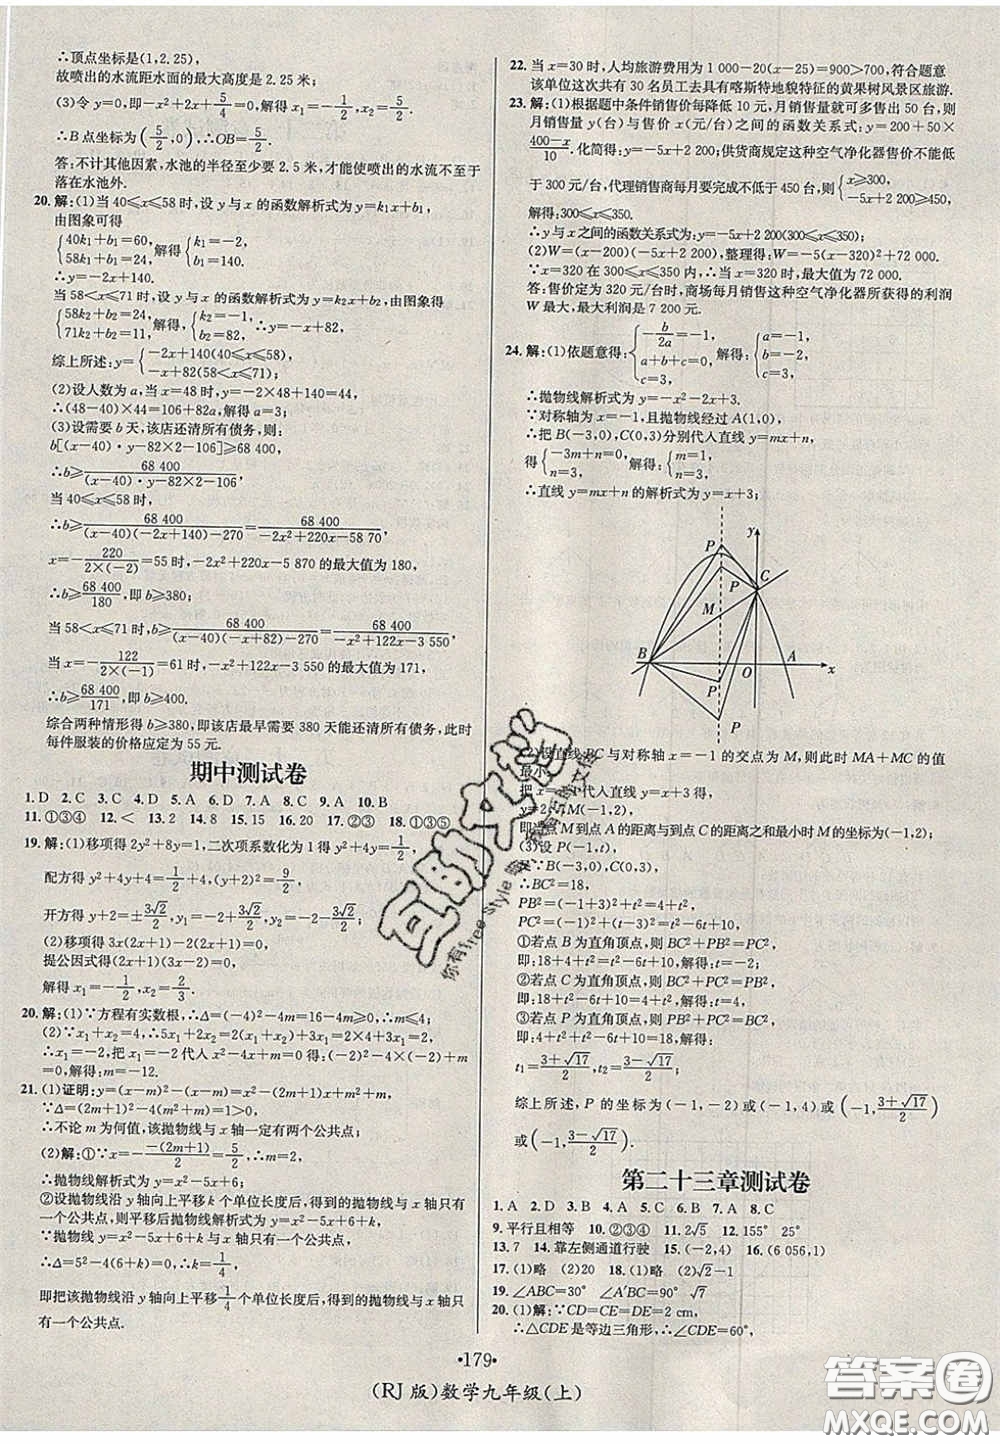 ∴顶点坐标是(1,2.25),
故喷出的水流距水面的最大高度是2.25米;
(3)令y=0,即-x²+2x+5/4=0,解得x₁=-1/2,x₂=5/2.
∴B点坐标为(5/2,0),∴OB=5/2.
答:不计其他因素,水池的半径至少要2.5米,才能使喷出的水流不至于
落在水池外.
20.解:(1)当40≤x≤58时,设y与x的函数解析式为y=k₁x+b₁,
由图象可得
{40k₁+b₁=60, 58k₁+b₁=24, 解得{k₁=-2, b₁=140.
∴y=-2x+140.
当58<x≤71时,设y与x的函数解析式为y=k₂x+b₂,由图象得
{58k₂+b₂=24, 71k₂+b₂=11, 解得,{k₂=-1, b₂=82, ∴y=-x+82,
综上所述:y={-2x+140(40≤x≤58), -x+82(58<x≤71);
(2)设人数为a,当x=48时,y=-2×48+140=44,
∴(48-40)×44=106+82a,解得a=3;
(3)设需要b天,该店还清所有债务,则:
b[(x-40)·y-82×2-106]≥68 400,
∴b≥68 400/((x-40)·y-82×2-106),
当40≤x≤58时,
∴b≥68 400/((x-40)(-2x+140)-270)=68 400/(-2x²+220x-58 70),
x=-220/(2×(-2))=55时,-2x²+220x-5 870的最大值为180,
∴b≥68 400/180,即b≥380;
当58<x≤71时,b≥68 400/((x-40)(-x+82)-270)=68 400/(-x²+122x-3 550),
当x=-122/(2×(-1))=61时,-x²+122x-3 550的最大值为171,
∴b≥68 400/171,即b≥400.
综合两种情形得b≥380,即该店最早需要380天能还清所有债务,此时
每件服装的价格应定为55元.
期中测试卷
1.D 2.C 3.C 4.D 5.A 6.D 7.A 8.C 9.A 10.B
11.①③④ 12.< 13.2 14.8 15.15 16.20 17.②③ 18.①③⑤
19.解:(1)移项得2y²+8y=1,二次项系数化为1得y²+4y=1/2,
配方得y²+4y+4=1/2+4,(y+2)²=9/2,
开方得y+2=±3√2/2,y₁=-2+3√2/2,y₂=-2-3√2/2;
(2)移项得3x(2x+1)-2(2x+1)=0,
提公因式得(2x+1)(3x-2)=0,
解得x₁=-1/2,x₂=2/3.
20.解:(1)∵方程有实数根,∴Δ=(-4)²-4m=16-4m≥0,∴m≤4;
(2)∵x₁+x₂=4,∴5x₁+2x₂=2(x₁+x₂)+3x₁=2×4+3x₁=2,
∴x₁=-2,把x₁=-2代入x²-4x+m=0得:(-2)²-4×(-2)+m
=0,解得:m=-12.
21.(1)证明:y=(x-m)²-(x-m)=x²-(2m+1)x+m²+m,
∵Δ=(2m+1)²-4(m²+m)=1>0,
∴不论m为何值,该抛物线与x轴一定有两个公共点;
(2)解:①∵x=-(-(2m+1))/2=5/2,∴m=2,
∴抛物线解析式为y=x²-5x+6;
②设抛物线沿y轴向上平移k个单位长度后,得到的抛物线与x轴只有
一个公共点,则平移后抛物线解析式为y=x²-5x+6+k,
∵抛物线y=x²-5x+6+k与x轴只有一个公共点,
∴Δ=5²-4(6+k)=0,∴k=1/4,
即把该抛物线沿y轴向上平移1/4个单位长度后,得到的抛物线与x轴只
有一个公共点.
22.当x=30时,人均旅游费用为1 000-20(x-25)=900>700,符合题意
该单位这次共有30名员工去具有喀斯特地貌特征的黄果树风景区旅游.
23.解:(1)根据题中条件销售价每降低10元,月销售量就可多售出50台,则
月销售量y(台)与售价x(元/台)之间的函数关系式:y=200+50×
(400-x)/10.化简得:y=-5x+2 200;供货商规定这种空气净化器售价不能低
于300元/台,代理销售商每月要完成不低于450台,则{x≥300, -5x+2 200≥450,
解得:300≤x≤350.
∴y与x之间的函数关系式为:y=-5x+2 200(300≤x≤350);
(2)W=(x-200)(-5x+2 200),整理得:W=-5(x-320)²+72 000.
∵x=320在300≤x≤350内,∴当x=320时,最大值为72 000.
答:售价定为320元/台时,商场每月销售这种空气净化器所获得的利润
W最大,最大利润是7 200元.
24.解:(1)依题意得:{-b/2a=-1, a+b+c=0, c=3, 解得:{a=-1, b=-2, c=3,
∴抛物线解析式为y=-x²-2x+3.
∵对称轴为x=-1,且抛物线经过A(1,0),
∴把B(-3,0),C(0,3)分别代入直线y=mx+n,
得{-3m+n=0, n=3, 解得:{m=1, n=3,
∴直线y=mx+n的解析式为y=x+3;
y
P
C
P
M
B
O
A
x
P
P
(2)设直线BC与对称轴x=-1的交点为M,则此时MA+MC的值
最小.
把x=-1代入直线y=x+3得,
y=2,∴M(-1,2),
即当点M到点A的距离与到点C的距离之和最小时M的坐标为(-1,2);
(3)设P(-1,t),
又∵B(-3,0),C(0,3),
∴BC²=18,
PB²=(-1+3)²+t²=4+t²,
PC²=(-1)²+(t-3)²=t²-6t+10,
①若点B为直角顶点,则BC²+PB²=PC²,
即:18+4+t²=t²-6t+10,解得:t=-2;
②若点C为直角顶点,则BC²+PC²=PB²,
即:18+t²-6t+10=4+t²,解得:t=4;
③若点P为直角顶点,则PB²+PC²=BC²,
即:4+t²+t²-6t+10=18,解得:
t₁=(3+√17)/2,t₂=(3-√17)/2;
综上所述,P的坐标为(-1,-2)或(-1,4)或(-1,(3+√17)/2)
或(-1,(3-√17)/2).
第二十三章测试卷
1.A 2.D 3.B 4.C 5.C 6.B 7.A 8.C
9.平行且相等 10.②③④ 11.2√5 12.155° 25°
13.7 14.靠左侧通道行驶 15.(-2,4) 16.(6 056,1)
17.(1)略 (2)20 18.(1)略 (2)√2-1
19.∠ABC=30° ∠A'BC=90° √7
20.(1)解:∵CD=CE=DE=2 cm,
∴△CDE是等边三角形,∴∠CDE=60°,
·179·
(RJ版)数学九年级(上)
互助文档
答案圈
MXQE.COM